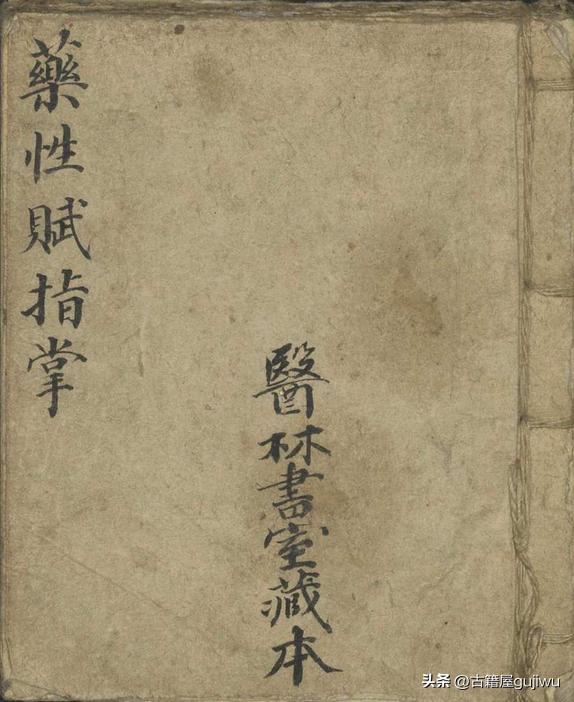 藥性賦指掌
醫林書室藏本
头条 @古籍屋gujiwu